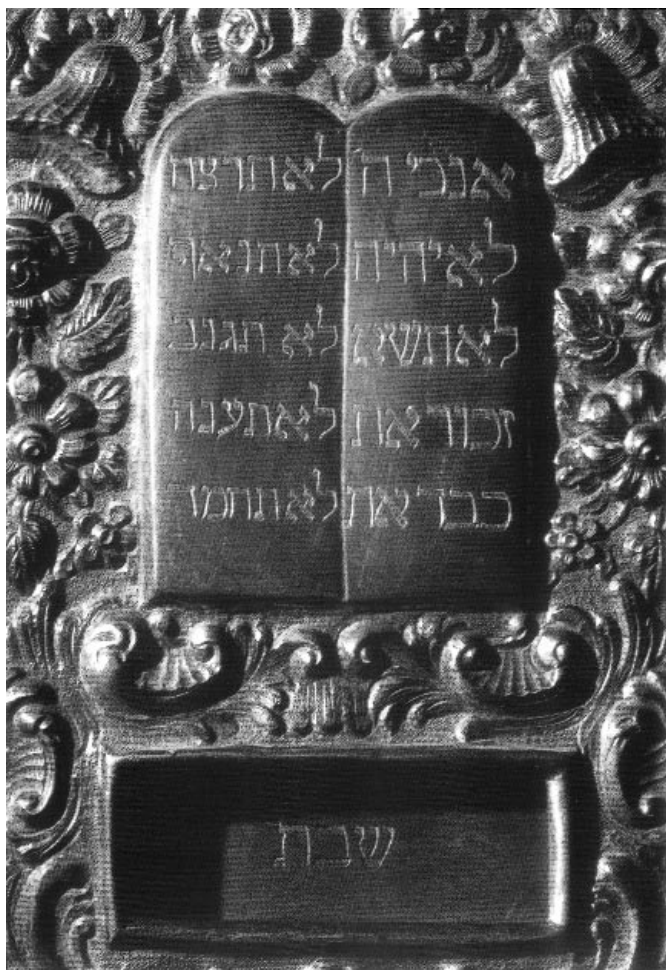 אנכי ה'
לא יהיה
לא תשא
זכור את
כבד את
לא תרצח
לא תנאף
לא תגנב
לא תענה
לא תחמד
שבת